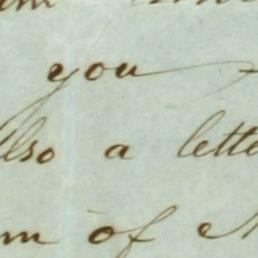 you
also a lette
m of